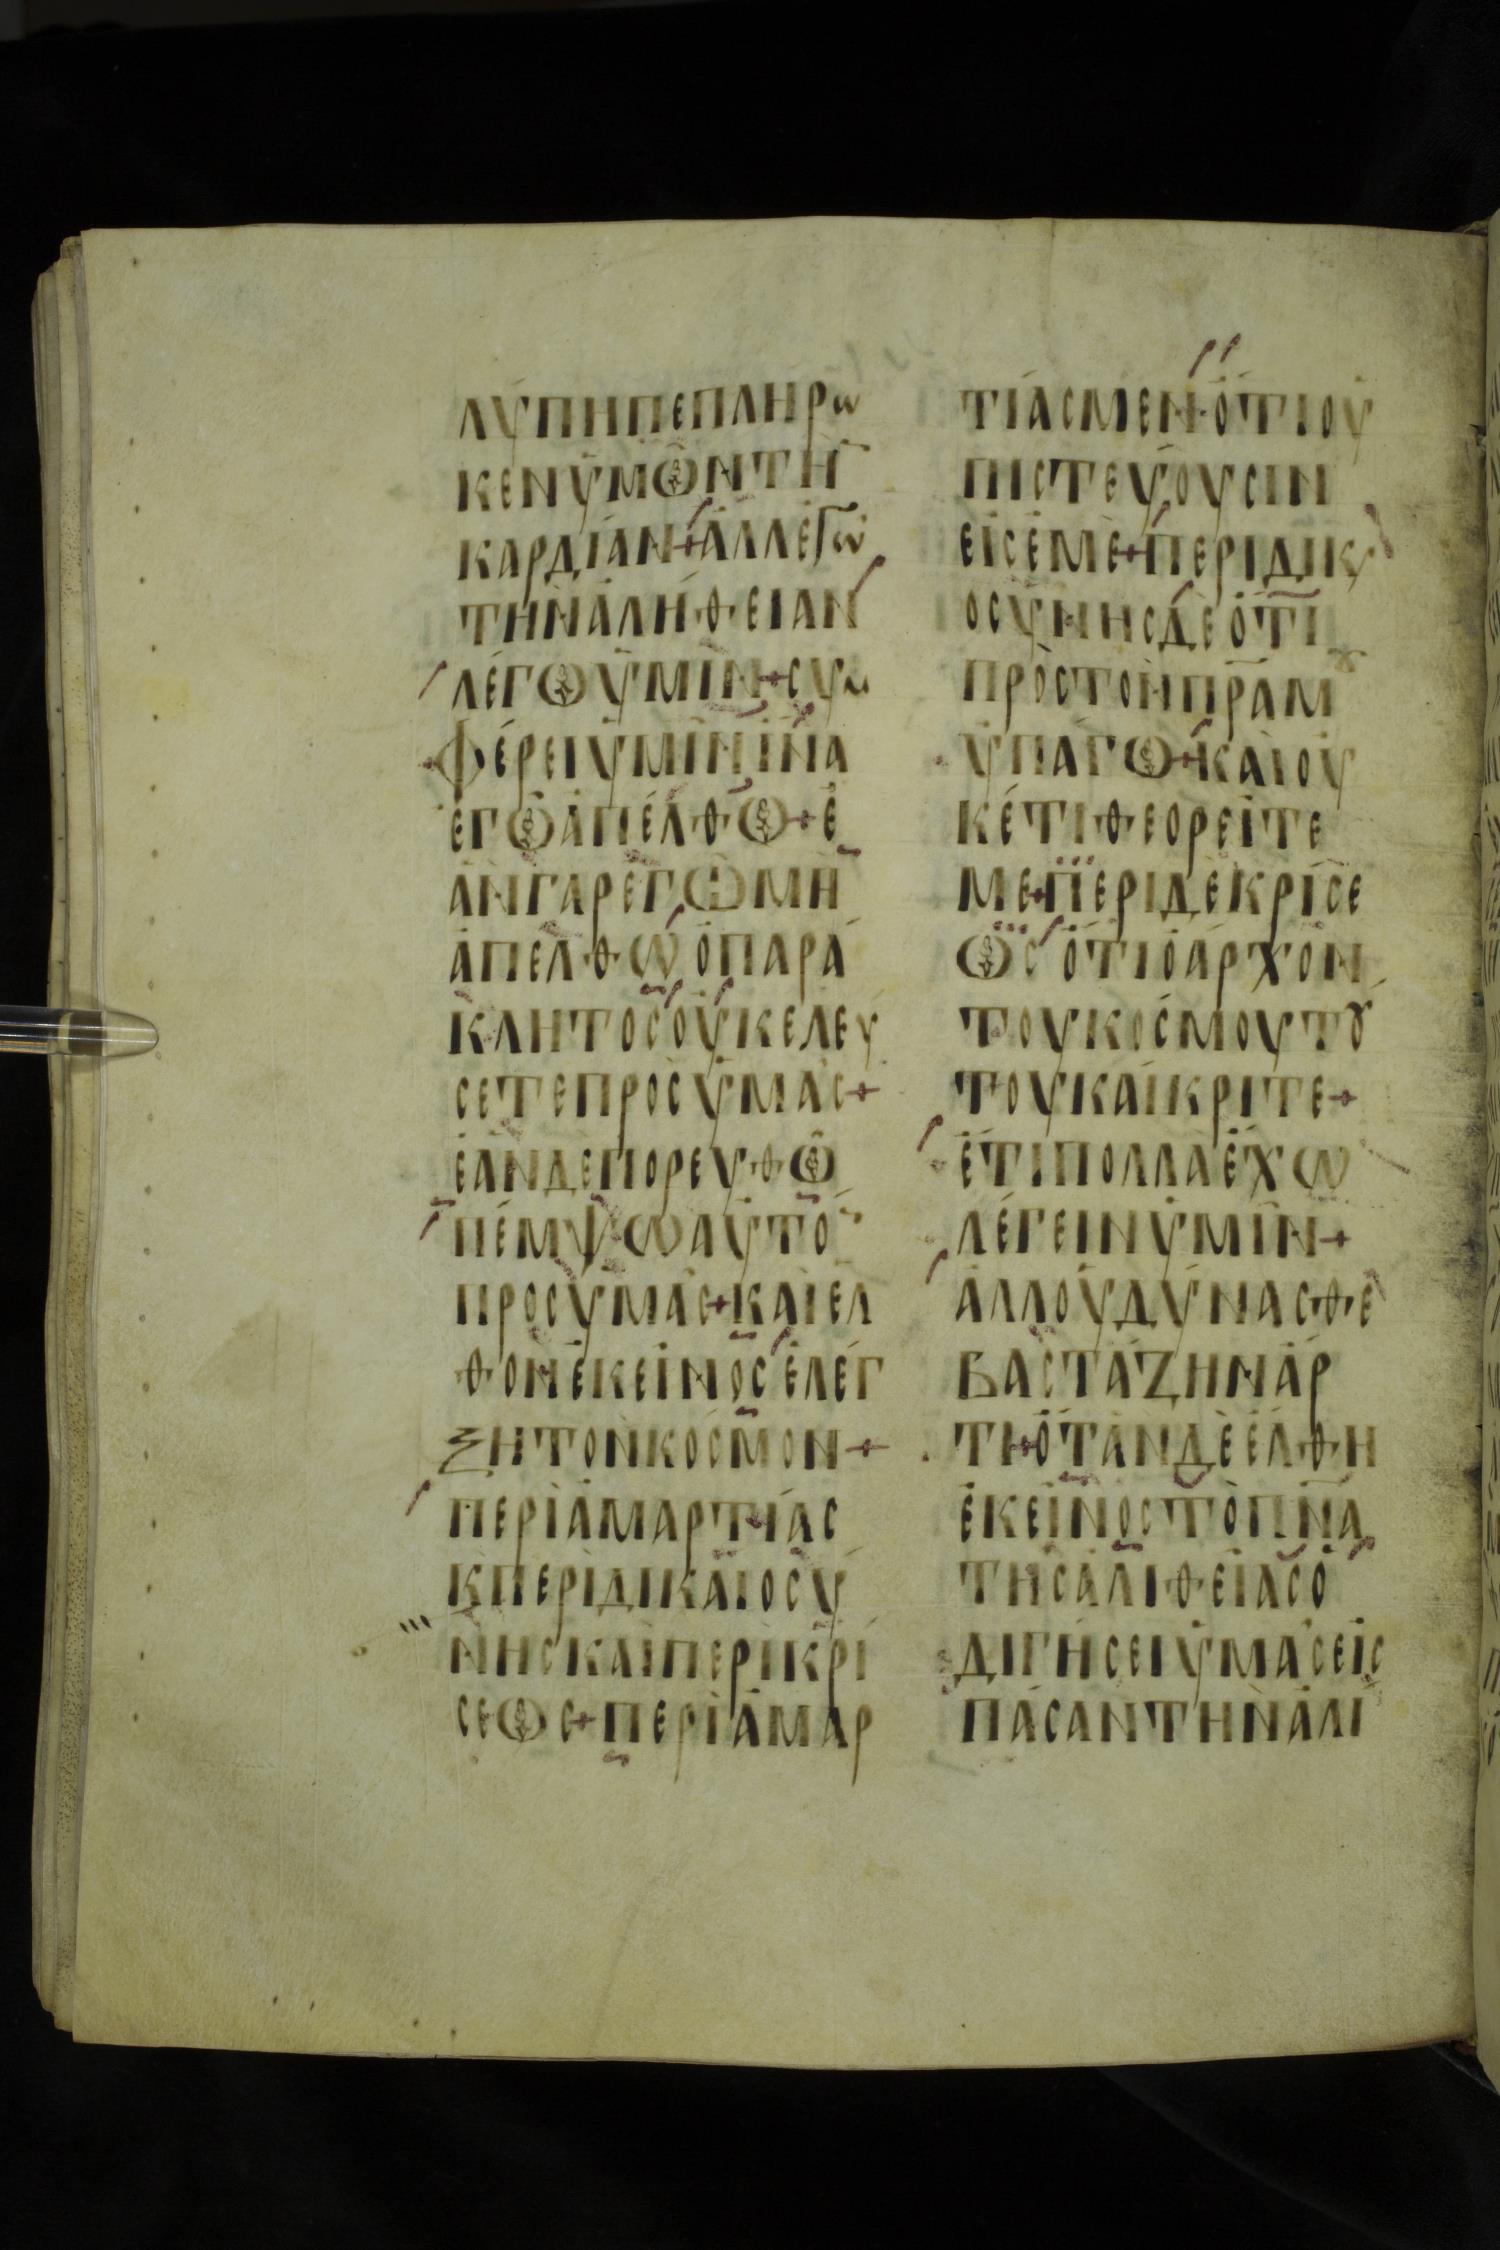 ΛΥΠΗΠΕΠΛΗΡω
ΚΕΝΥΜΩΝΤΗ
ΚΑΡΔΙΑΝ+ΑΛΛΕΓω
ΤΗΝΑΛΗΘΕΙΑΝ
ΛΕΓΩΥΜΙΝ+ΣΥΜ
ΦΕΡΕΙΥΜΙΝΙΝΑ
ΕΓΩΑΠΕΛΘΩ+Ε
ΑΝΓΑΡΕΓΩΜΗ
ΑΠΕΛΘΩΟΠΑΡΑ
ΚΛΗΤΟСΟΥΚΕΛΕΥ
СΕΤΕΠΡΟСΥΜΑС+
ΕΑΝΔΕΠΟΡΕΥΘΩ
ΠΕΜΨΩΑΥΤΟ
ΠΡΟСΥΜΑС+ΚΑΙΕΛ
ΘΟΝΕΚΕΙΝΟСΕΛΕΓ
ΞΗΤΟΝΚΟСΜΟΝ+
ΠΕΡΙΑΜΑΡΤΙΑС
ΚΠΕΡΙΔΙΚΑΙΟСΥ
ΝΗСΚΑΙΠΕΡΙΚΡΙ
СΕΩС+ΠΕΡΙΑΜΑΡ
ΤΙΑСΜΕΝ·ΟΤΙΟΥ
ΠΙСΤΕΥΟΥСΙΝ
ΕΙСΕΜΕ+ΠΕΡΙΔΙΚ
ΟСΥΝΗСΔΕΟΤΙ
ΠΡΟСΤΟΝΠΡΑΜ
ΥΠΑΓΩ+ΚΑΙΟΥ
ΚΕΤΙΘΕΟΡΕΙΤΕ
ΜΕ+ΠΕΡΙΔΕΚΡΙСΕ
ΩСΟΤΙΟΑΡΧΟΝ
ΤΟΥΚΟСΜΟΥΤȢ
ΤΟΥΚΑΙΚΡΙΤΕ+
ΕΤΙΠΟΛΛΑΕΧΩ
ΛΕΓΕΙΝΥΜΙΝ+
ΑΛΛΟΥΔΥΝΑСΘΕ
ΒΑСΤΑΖΗΝΑΡ
ΤΗ+ΟΤΑΝΔΕΕΛΘΗ
ΕΚΕΙΝΟСΤΟΠΝΑ
ΤΗСΑΛΙΘΕΙΑСΟ
ΔΙΓΗСΕΙΥΜΑСΕΙС
ΠΑСΑΝΤΗΝΑΛΙ